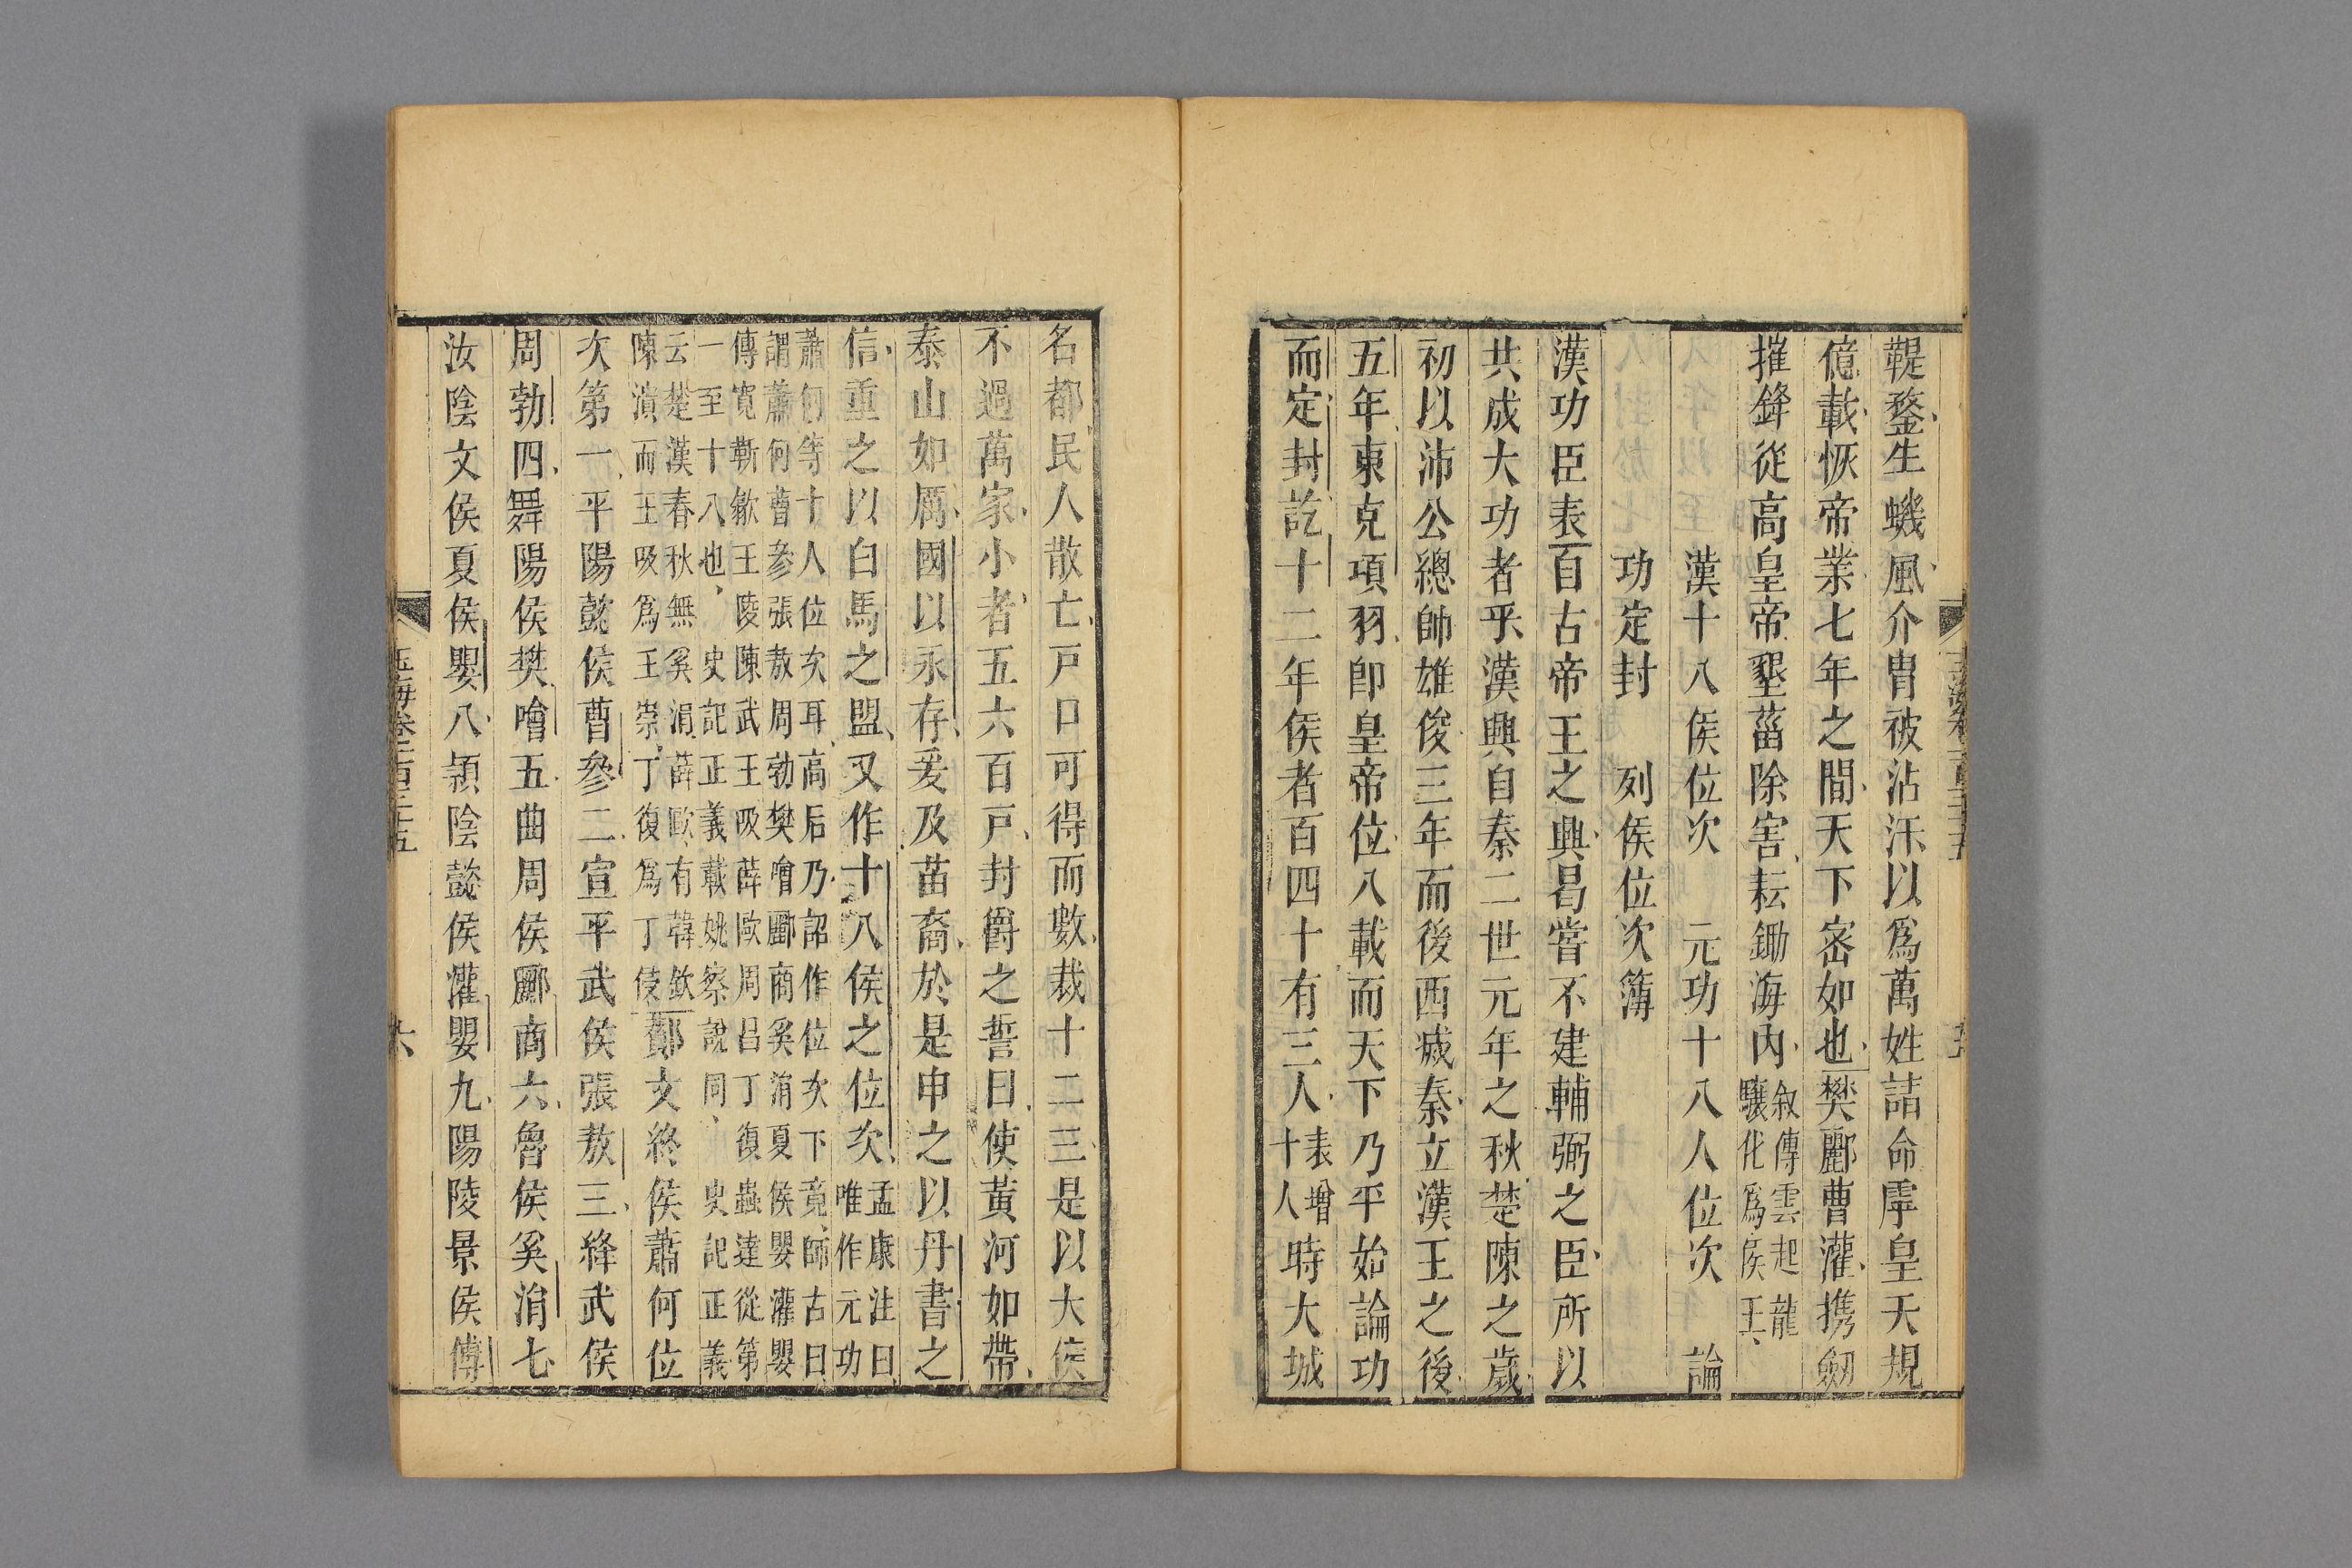 鞮鍪生蟣風介胄被沾汗以爲萬姓請命虖皇天規
億載恢帝業七年之間天下密如也樊酈曹灌携劒
摧鋒從高皇帝墾菑除害耘鋤海内叙傳雲起龍驤化爲侯王
漢十八侯位次　元功十八人位次　論
功定封　列侯位次簿
漢功臣表百古帝王之興曷嘗不建輔弼之臣所以
共成大功者乎漢興自秦二世元年之秋楚陳之歲
初以沛公總帥雄俊三年而後西滅秦立漢王之後
五年東克項羽卽皇帝位八載而天下乃平始論功
而定封訖十二年侯者百四十有三人表增十人時大城
名都民人散亡戸口可得而數裁十二三是以大侯
不過萬家小者五六百戸封爵之誓曰使黃河如帶
泰山如厲國以永存爰及苗裔於是申之以丹書之
信重之以白馬之盟又作十八侯之位次孟康注曰唯作元功
蕭何等十人位次耳高后乃詔作位次下竟師古曰
謂蕭何曹參張敖周勃樊噲酈商奚涓夏侯嬰灌嬰
傅寬靳歙王陵陳武王吸薛歐周昌丁復蟲達從第
一至十八也史記正義載姚察說同史記正義
云楚漢春秋無奚涓薛歐有韓欽
陳濆而王吸爲王崇丁復爲丁侵
酇文終侯蕭何位
次第一平陽懿侯曹參二宣平武侯張敖三絳武侯
周勃四舞陽侯樊噲五曲周侯酈商六魯侯奚涓七
汝陰文侯夏侯嬰八潁陰懿侯灌嬰九陽陵景侯傅
玉海卷一百三十五
六